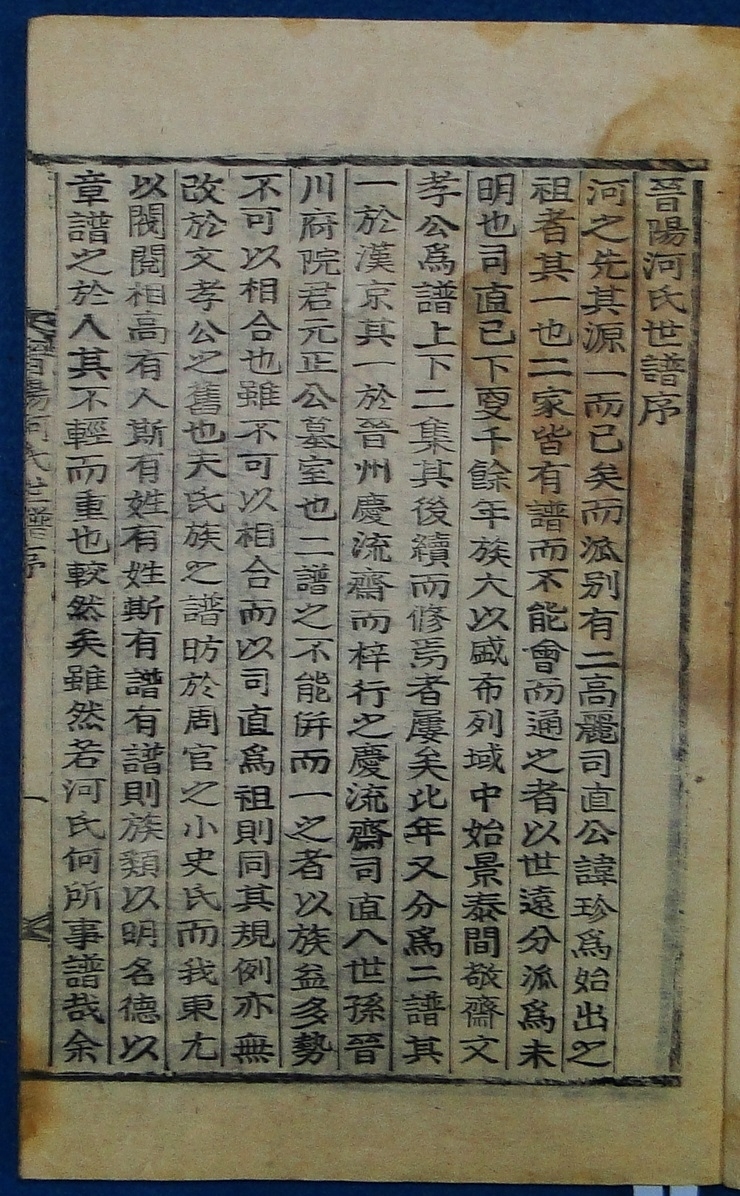 晉陽河氏世譜序
河之先其源一而已矣而派別有二高麗司直公諱珍爲始出之
祖者其一也二家皆有譜而不能會而通之者以世遠分派爲未
明也司直已下叓千餘年族大以盛布列域中始景泰間敬齋文
孝公爲譜上下二集其後續而修焉者屢矣比年又分爲二譜其
一於漢京其一於晉州慶流齋而梓行之慶流齋司直八世孫晉
川府院君元正公墓室也二譜之不能倂而一之者以族益多勢
不可以相合也雖不可以相合而以司直爲祖則同其規例亦無
改於文孝公之舊也夫氏族之譜昉於周官之小史氏而我東尤
以閥閱相高有人斯有姓有姓斯有譜有譜則族類以明名德以
章譜之於人其不輕而重也較然矣雖然若河氏何所事譜哉余
晉陽河氏世譜序
一